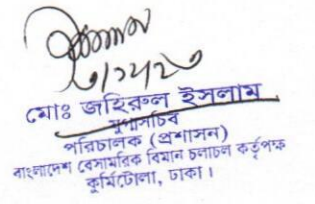 মোঃ জহিরুল ইসলাম
যুগ্মসচিব
পরিচালক (প্রশাসন)
বাংলাদেশ বেসামরিক বিমান চলাচল কর্তৃপক্ষ
কুর্মিটোলা, ঢাকা।